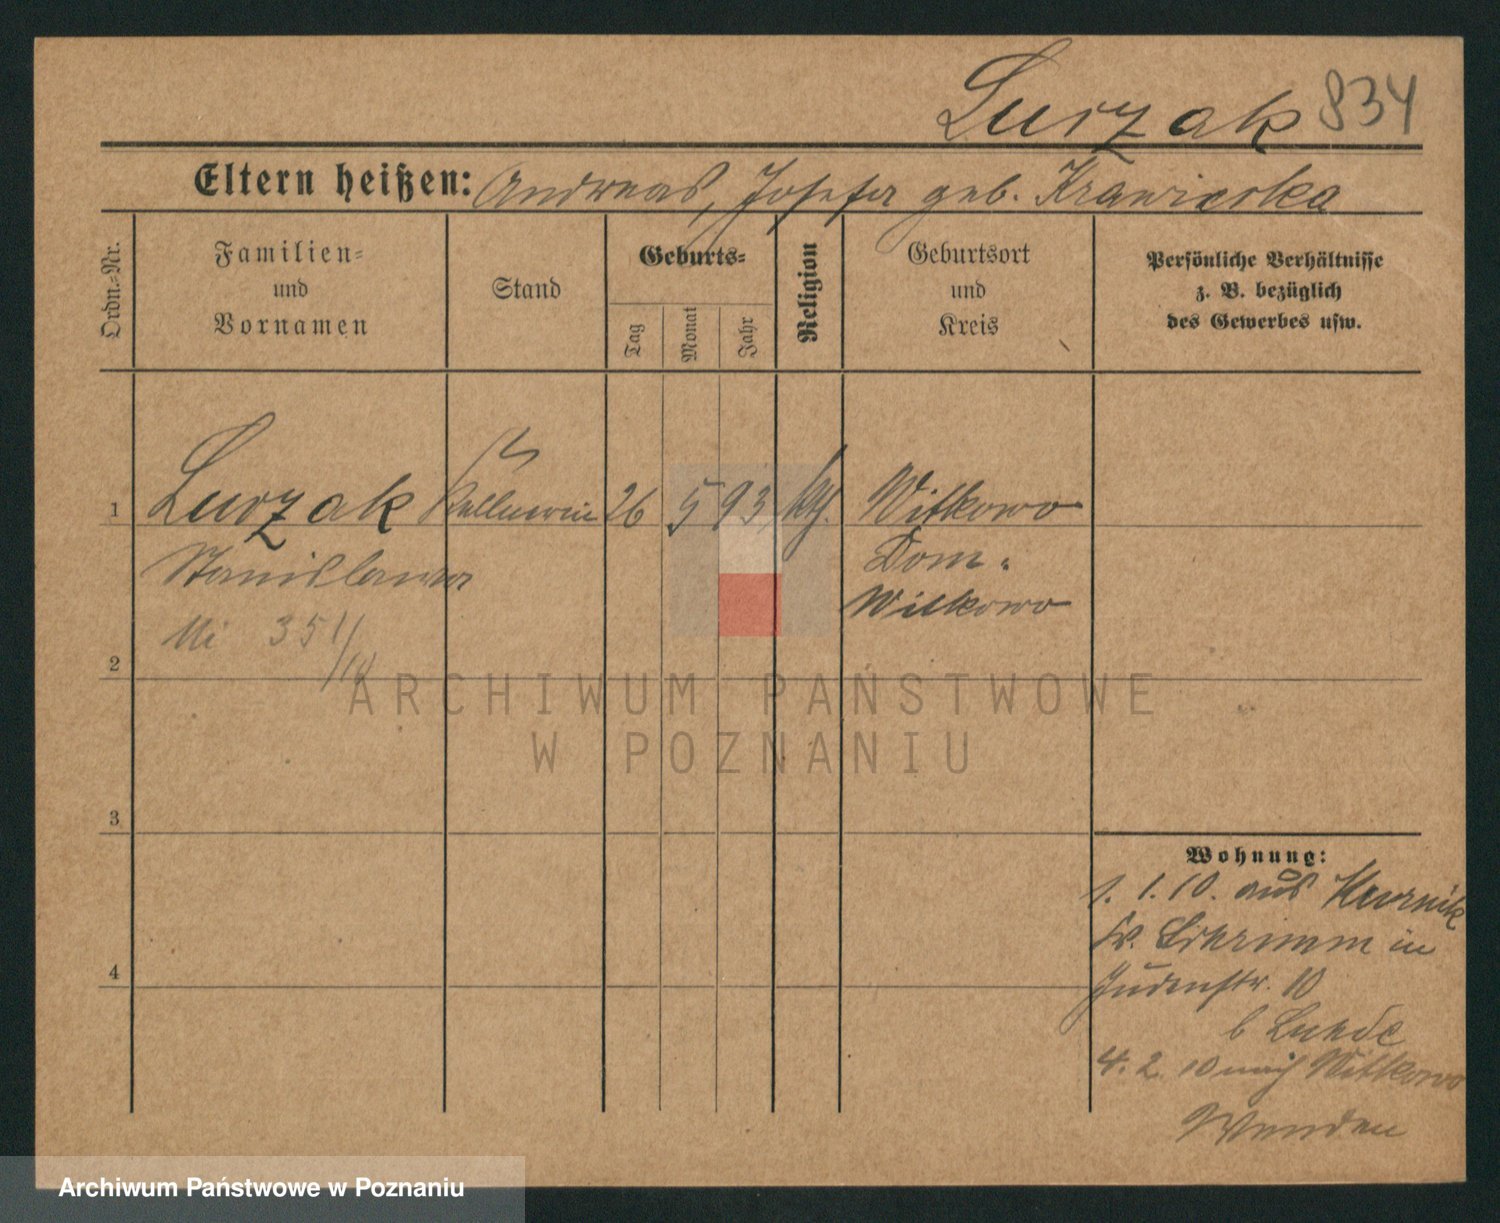 Lurzak 834
Eltern heißen: Andreas, Josefa geb. Krawiecka
Ordn.-Nr.
Familien-
und
Vornamen
Stand
Geburts-
Tag
Monat
Jahr
Religion
Geburtsort
und
Kreis
Persönliche Verhältnisse
z. B. bezüglich
des Gewerbes usw.
1 Lurzak Kellnerin 26 5 93 kth. Witkowo
Stanislawa Dom.
Witkowo
Mi 351/10
2
3
4
Wohnung:
1. 1. 10. aus Kurnik
in
Judenstr. 10
b
4. 2. 10 nach Witkowo
ARCHIWUM PAŃSTWOWE
W POZNANIU
Archiwum Państwowe w Poznaniu